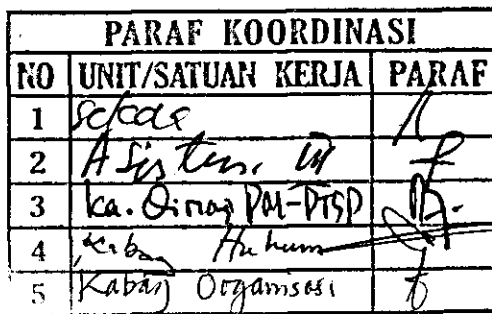 PARAF KOORDINASI
NO UNIT/SATUAN KERJA PARAF
1 Sekda
2 Asisten. III
3 ka. Dinas PM-PTSP
4 Kabag Hukum
5 Kabag Organisasi